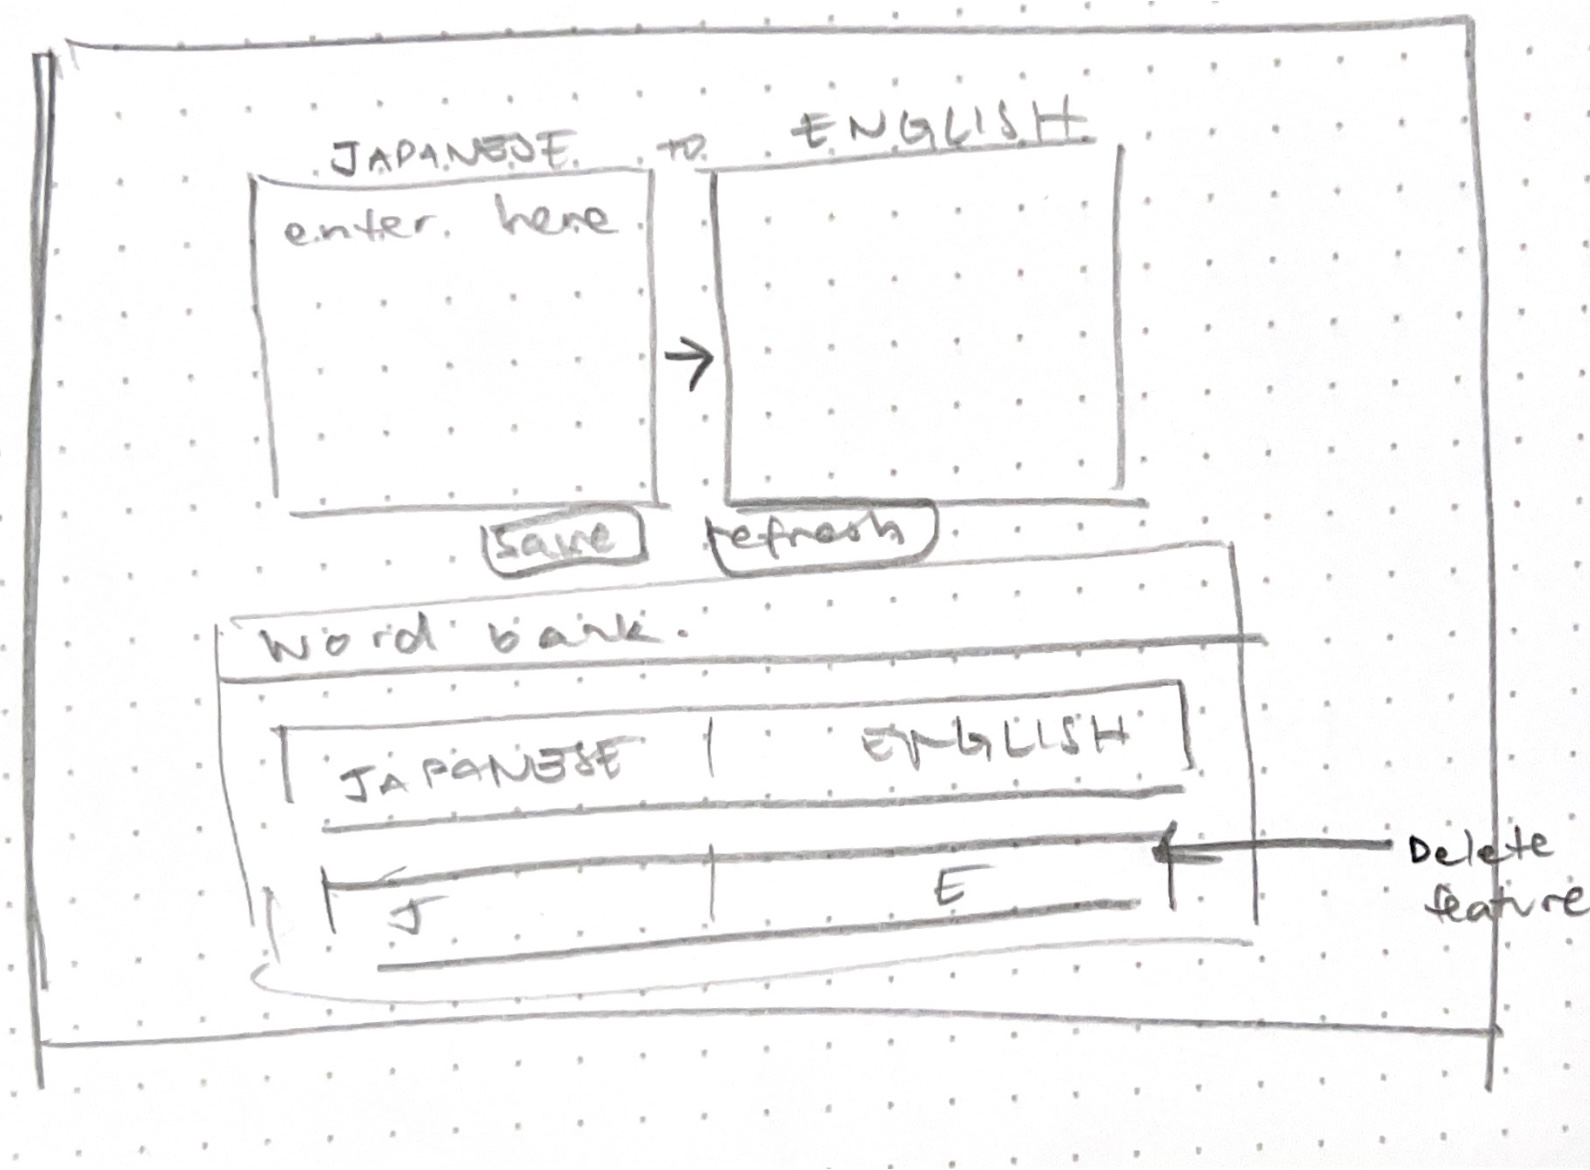 JAPANESE to ENGLISH
enter here
save refresh
Word bank.
JAPANESE ENGLISH
J E
Delete
feature